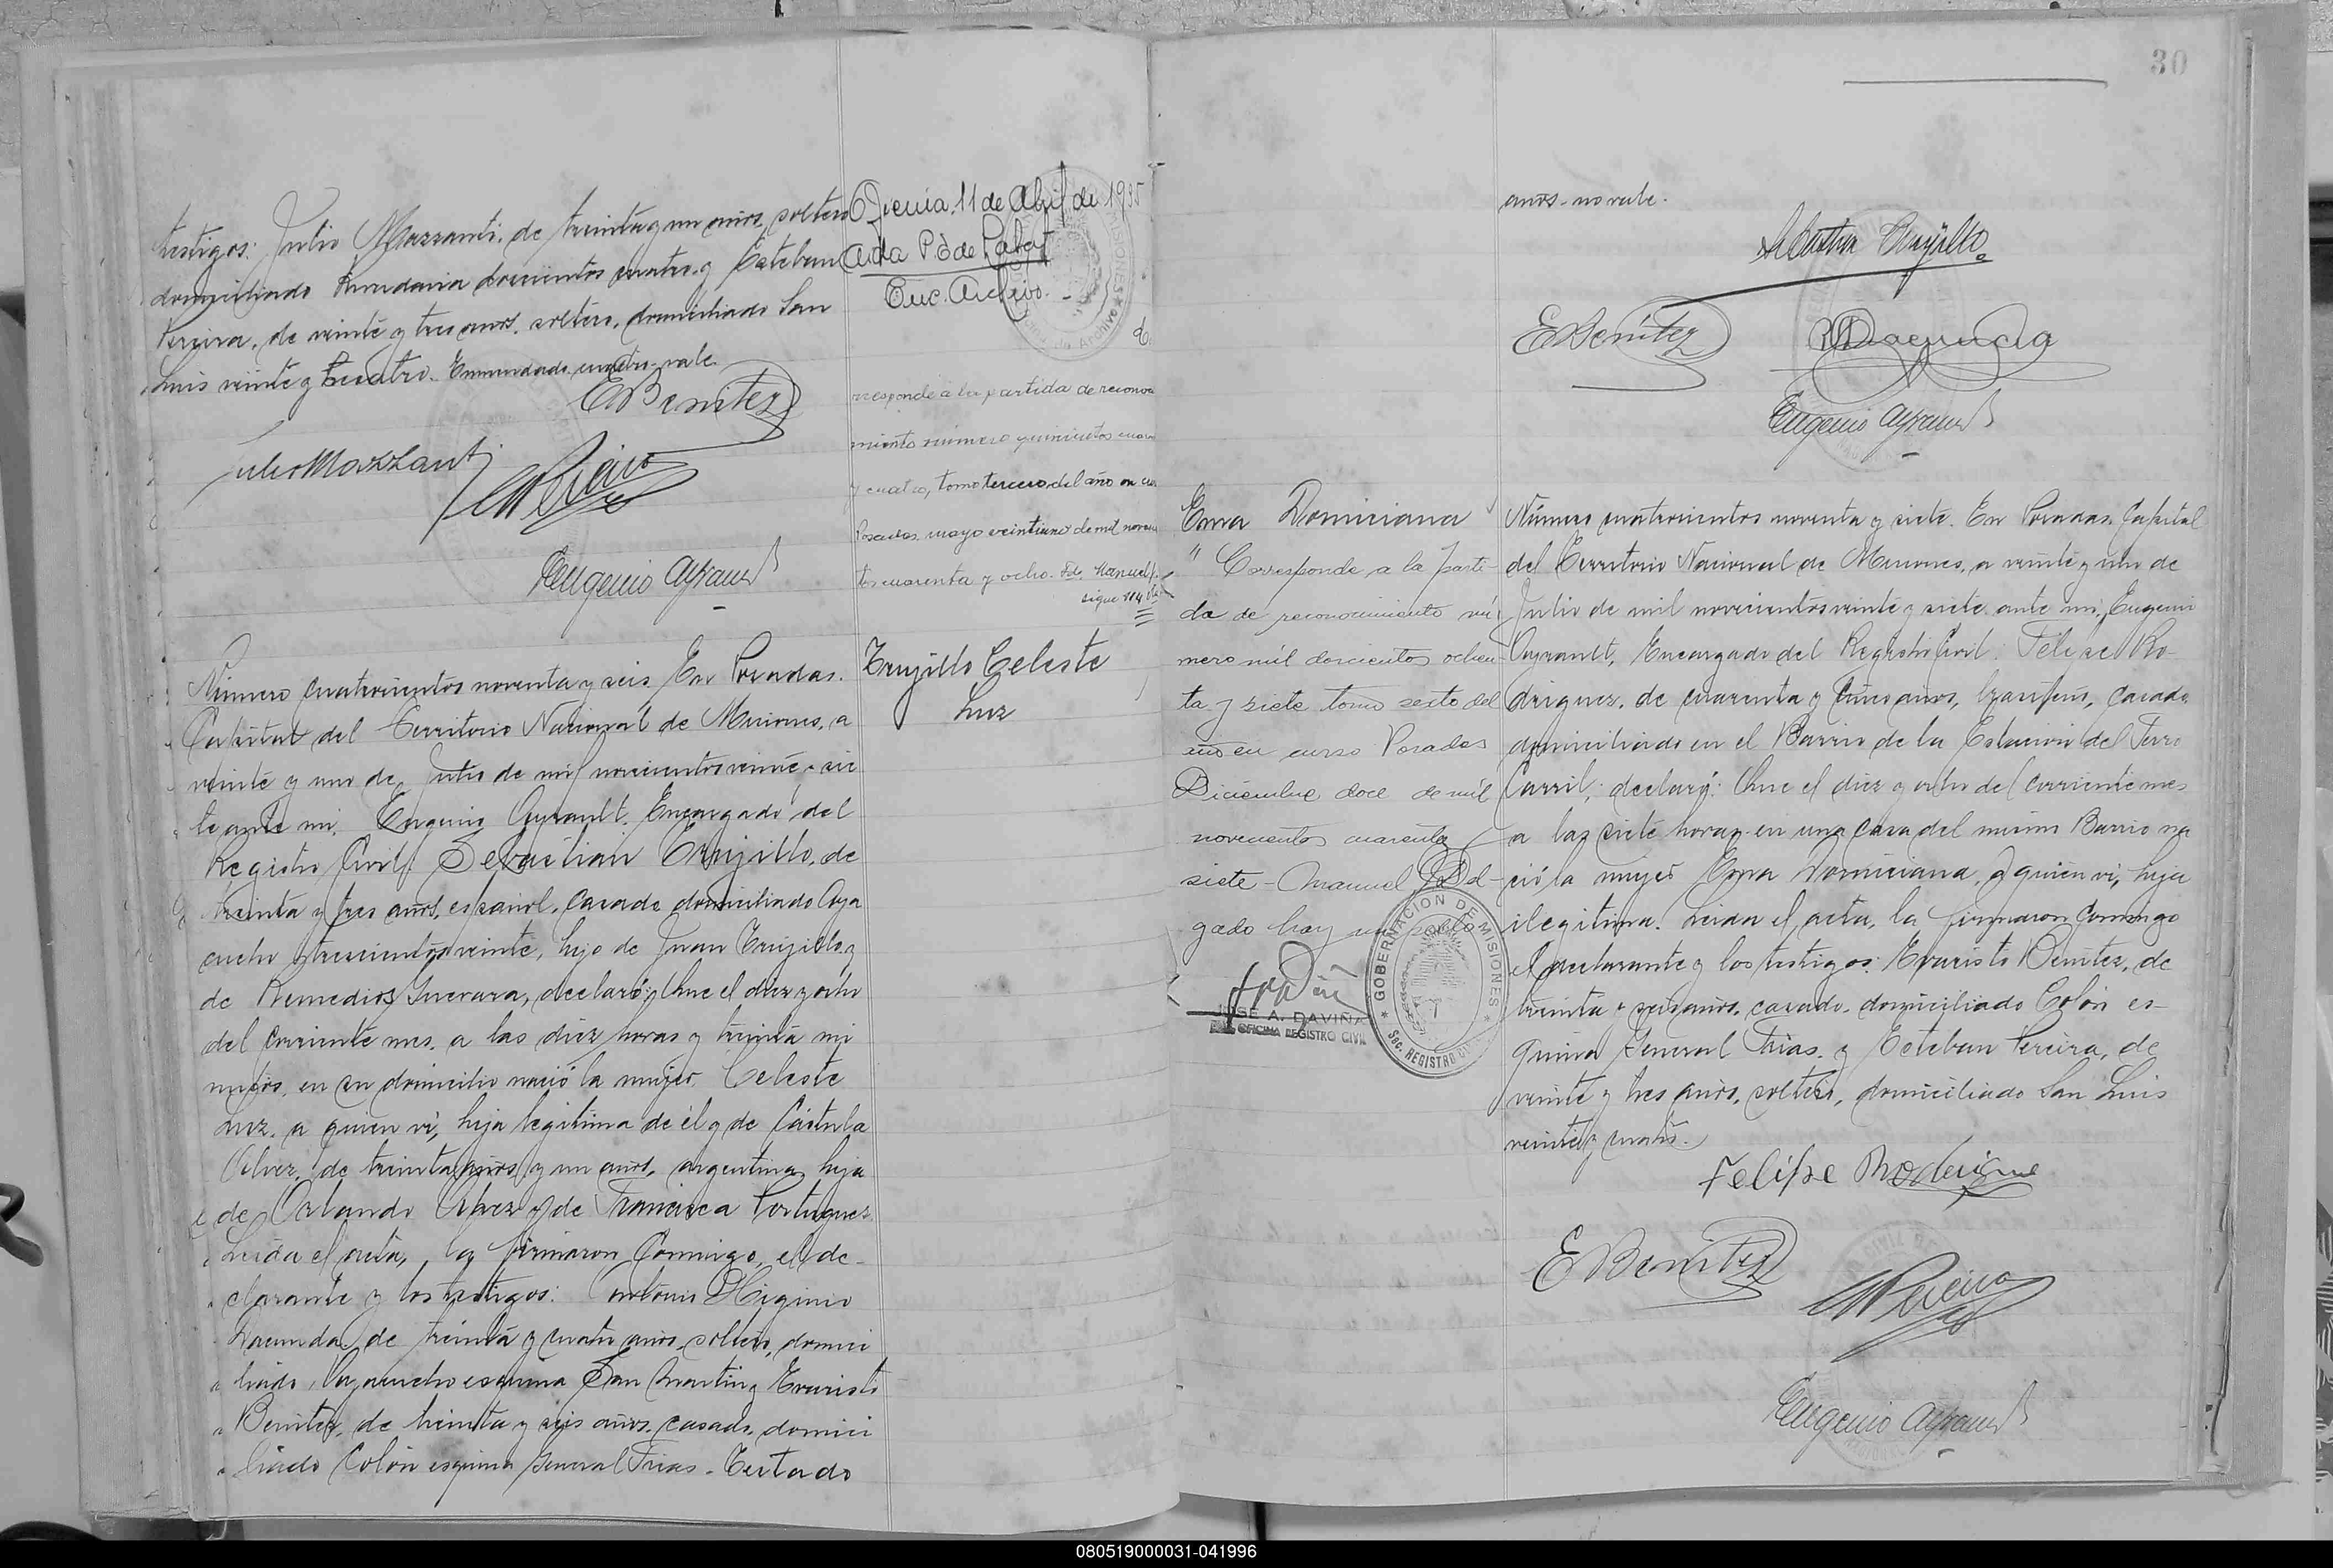 testigos: Julio Mazzanti, de treinta y un años, soltero
domiciliado Rivadavia doscientos cuatro y Esteban
Pereira, de veinte y tres años, soltero, domiciliado San
Luis veinte y cuatro. Enmendado cuatro vale.
EBenitez
Julio Mazzanti
EPereira
Eugenio Ayrault
11 de Abril de 1995
Aida
Enc. Archivo
rresponde a la partida de reconoci
miento número quinientos cuaren
y cuatro, tomo tercero del año en cur
Posadas, mayo veintiuno de mil novecien
tos cuarenta y ocho. Fdo. Manuel
sigue
Número cuatrocientos noventa y seis. En Posadas.
Capital del Territorio Nacional de Misiones, a
veinte y uno de Julio de mil novecientos veinte y sie
te ante mi, Eugenio Ayrault, Encargado del
Registro Civil: Sebastian Trujillo, de
treinta y tres años, español, casado domiciliado Aya
cucho trescientos veinte, hijo de Juan Trujillo y
de Remedios Guevara, declaró: Que el diez y ocho
del corriente mes, a las diez horas y treinta mi
nutos, en su domicilio nació la mujer Celeste
Luz, a quien vi, hija legitima de él y de Cástula
Alvez, de treinta años y un años, argentina, hija
de Orlando Alvez y de Francisca Portuguez.
Leida el acta, la firmaron conmigo, el de-
clarante y los testigos: Antonio Higinio
de treinta y cuatro años, soltero, domici
liado Ayacucho esquina San Martin y Evaristo
Benitez, de treinta y seis años, casado, domici
liado Colón esquina General Frias. Testado
Trujillo Celeste
Luz
30
años - no vale.
Sebastian Trujillo
EBenitez
Eugenio Ayrault
Ema Domiciana
" Corresponde a la parti-
da de reconocimiento nú
mero mil doscientos ochen-
ta y siete tomo sexto del
año en curso Posadas
Diciembre doce de mil
novecientos cuarenta y
siete - Manuel Del-
gado hay un sello
JOSE A. DAVIÑA
OFICINA REGISTRO CIVIL
GOBERNACION DE MISIONES
SEC. REGISTRO CIVIL
Número cuatrocientos noventa y siete. En Posadas, Capital
del Territorio Nacional de Misiones, a veinte y uno de
Julio de mil novecientos veinte y siete, ante mi, Eugenio
Ayrault, Encargado del Registro Civil: Felipe Ro-
driguez, de cuarenta y cinco años, brasilero, casado
domiciliado en el Barrio de la Estacion del Ferro
Carril, declaró: Que el diez y ocho del corriente mes
a las siete horas en una casa del mismo Barrio na
ció la mujer Ema Domiciana, a quien vi, hija
ilegitima. Leida el acta, la firmaron conmigo
el declarante y los testigos: Evaristo Benitez, de
treinta y seis años, casado, domiciliado Colón es-
quina General Frias, y Esteban Pereira, de
veinte y tres años, soltero, domiciliado San Luis
veinte y cuatro.
Felipe Rodrigue
EBenitez
EPereira
Eugenio Ayrault
080519000031-041996